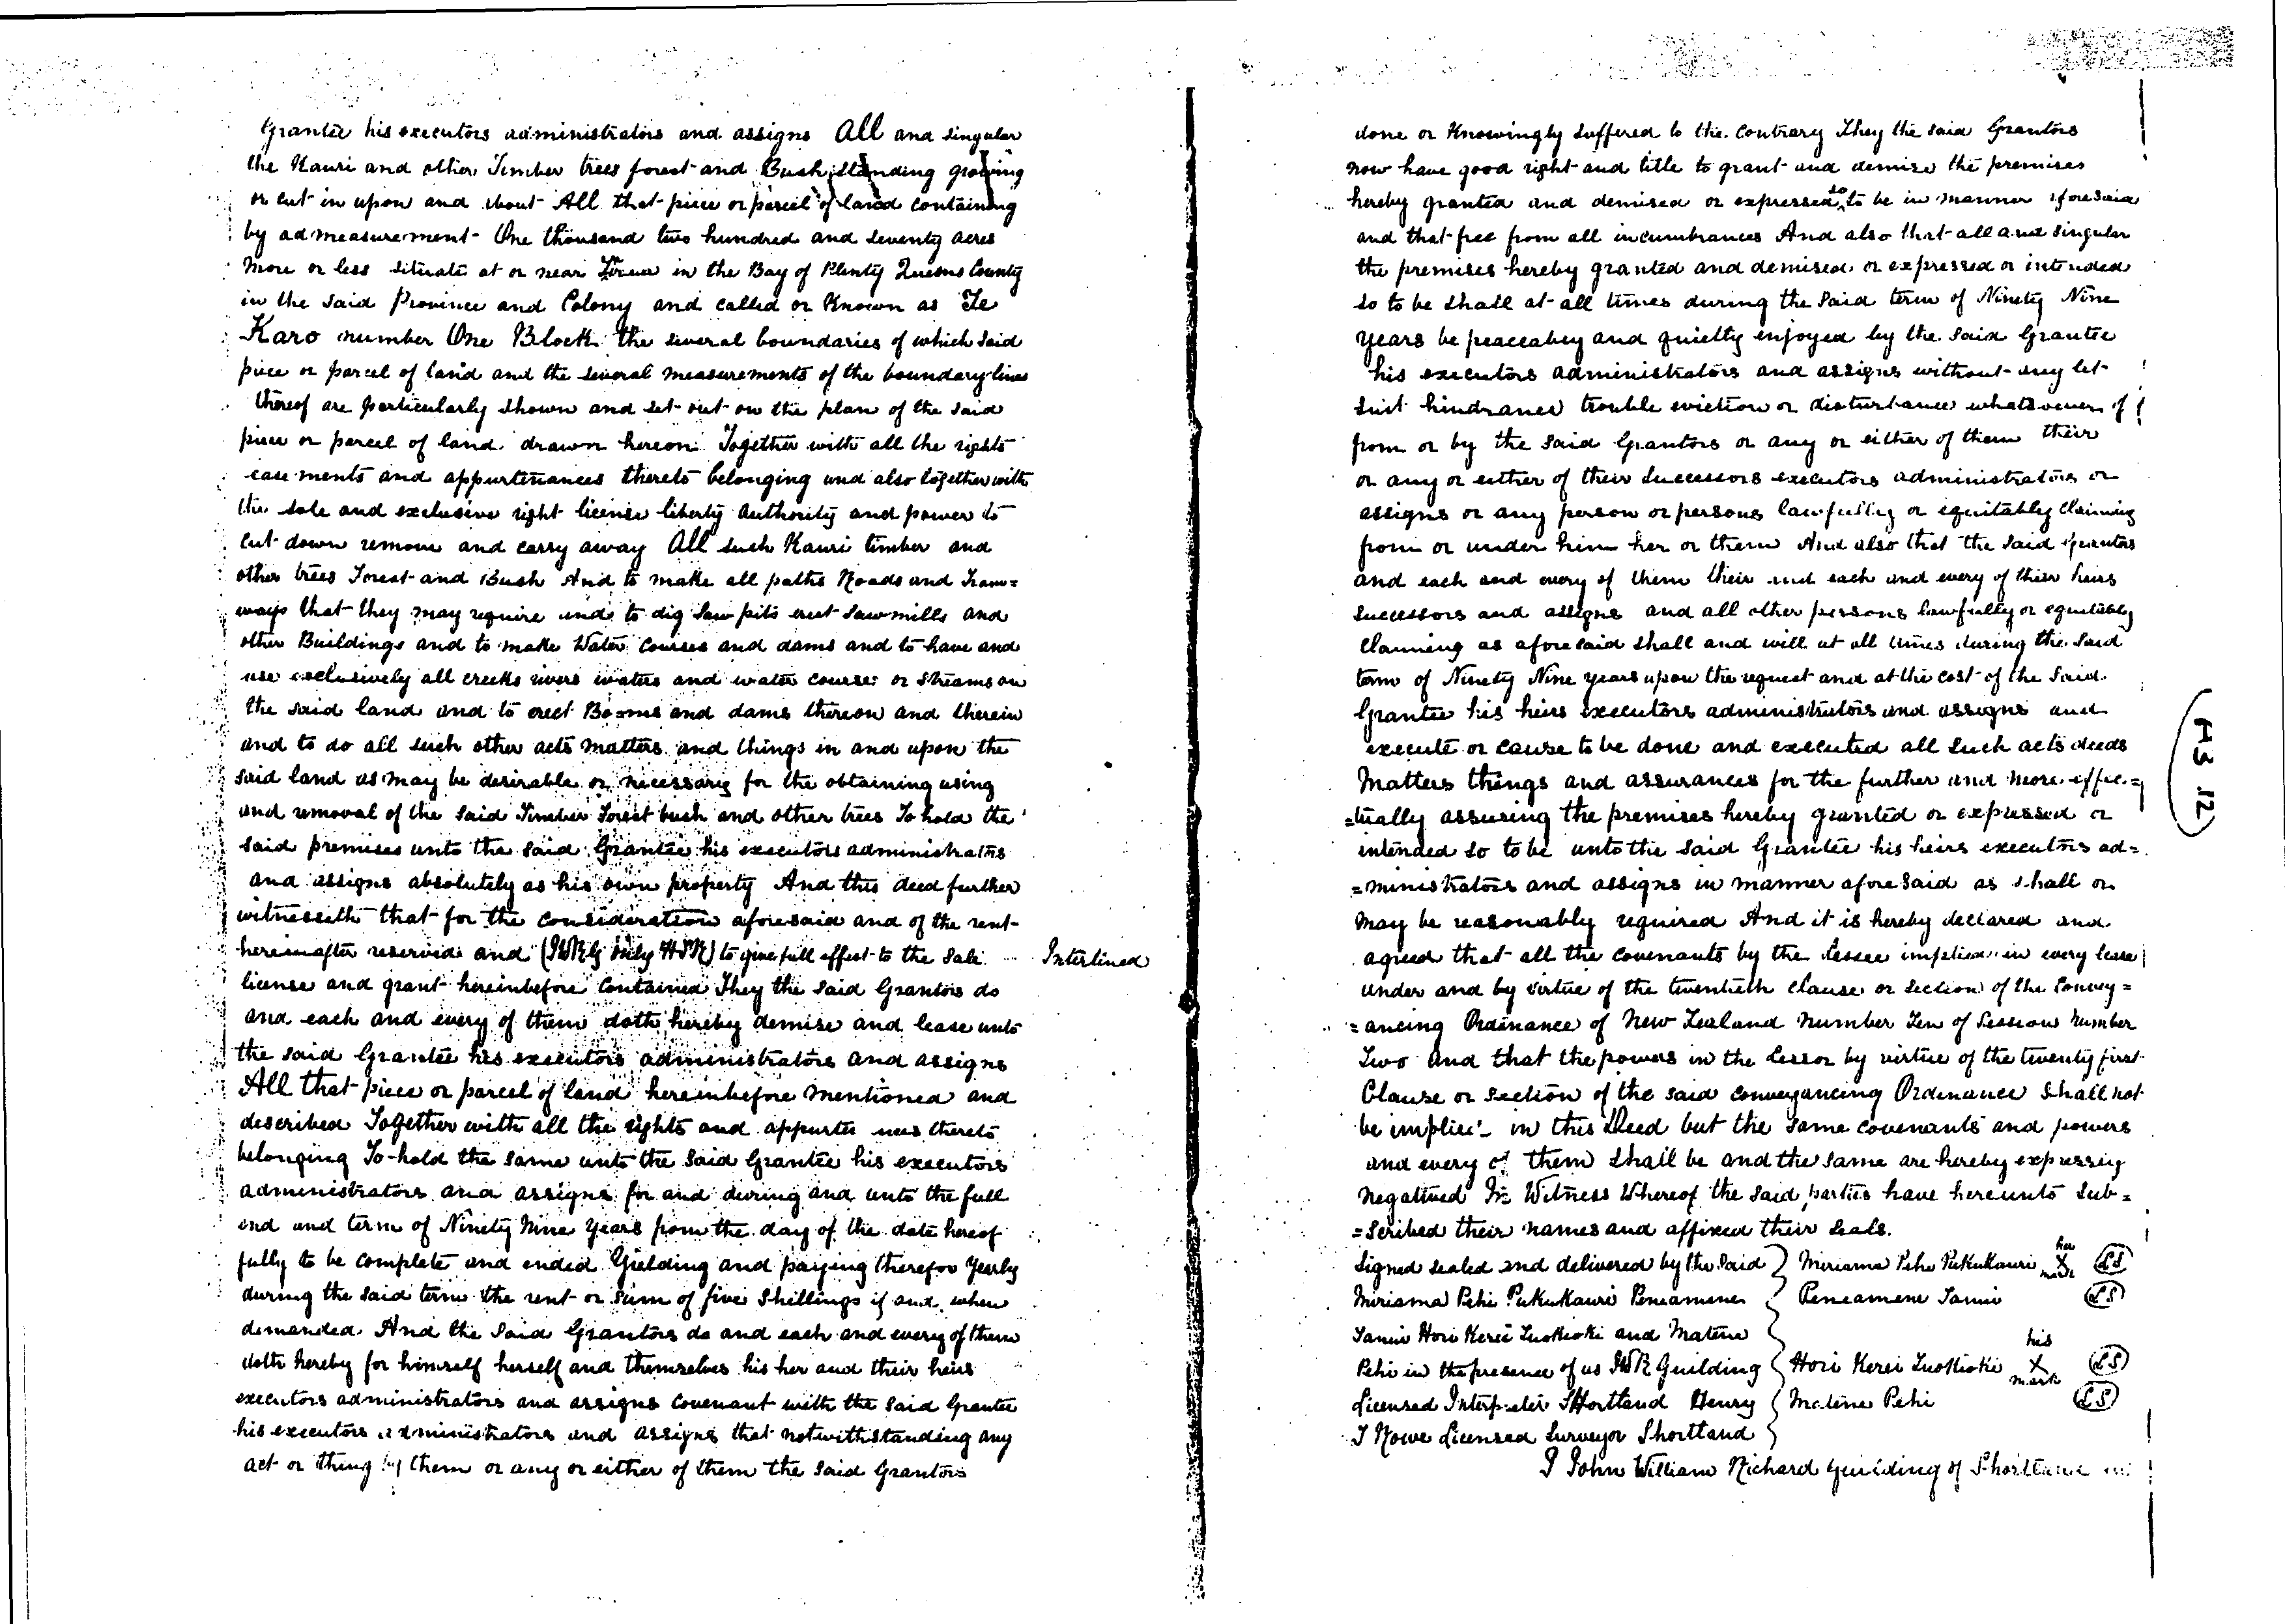 Grantee his executors administrators and assigns All and singular
the Kauri and other Timber trees forest and Bush standing growing
or cut in upon and about All that piece or parcel of land containing
by admeasurement One thousand two hundred and seventy acres
more or less situate at or near in the Bay of Plenty Queens County
in the said Province and Colony and called or Known as Te
Karo number One Block the several boundaries of which said
piece or parcel of land and the several measurements of the boundary lines
thereof are particularly shown and set out on the plan of the said
piece or parcel of land drawn hereon Together with all the rights
easements and appurtenances thereto belonging and also together with
the sole and exclusive right license liberty authority and power to
cut down remove and carry away All such Kauri timber and
other trees Forest and Bush And to make all paths Roads and Tram=
ways that they may require and to dig Saw pits erect Sawmills and
other Buildings and to make Water Courses and dams and to have and
use exclusively all creeks rivers waters and water courses or streams on
the said land and to erect Booms and dams thereon and therein
and to do all such other acts matters and things in and upon the
said land as may be desirable or necessary for the obtaining using
and removal of the said Timber Forest bush and other trees To hold the
said premises unto the said Grantee his executors administrators
and assigns absolutely as his own property And this deed further
witnesseth that for the consideration aforesaid and of the rent
hereinafter reserved and (JWRG only HJR) to give full effect to the Sale Interlined
license and grant hereinbefore contained They the said Grantors do
and each and every of them doth hereby demise and lease unto
the said Grantee his executors administrators and assigns
All that piece or parcel of land hereinbefore mentioned and
described Together with all the rights and appurte nces thereto
belonging To hold the same unto the said Grantee his executors
administrators and assigns for and during and unto the full
end and term of Ninety Nine years from the day of the date hereof
fully to be complete and ended Yielding and paying therefor yearly
during the said term the rent or sum of five Shillings if and when
demanded And the said Grantors do and each and every of them
doth hereby for himself herself and themselves his her and their heirs
executors administrators and assigns covenant with the said Grantee
his executors administrators and assigns that notwithstanding any
act or thing by them or any or either of them the said Grantors
done or Knowingly suffered to the contrary They the said Grantors
now have good right and title to grant and demise the premises
hereby granted and demised or expressed so to be in manner aforesaid
and that free from all incumbrances And also that all and singular
the premises hereby granted and demised or expressed or intended
so to be shall at all times during the said term of Ninety Nine
years be peaceabey and quietly enjoyed by the said Grantee
his executors administrators and assigns without any let
suit hindrance trouble eviction or disturbance whatsoever of
from or by the said Grantors or any or either of them their
or any or either of their Successors executors administrators or
assigns or any person or persons lawfully or equitably claiming
from or under him her or them And also that the said Grantors
and each and every of them their and each and every of their heirs
successors and assigns and all other persons lawfully or equitably
claiming as aforesaid shall and will at all times during the said
term of Ninety Nine years upon the request and at the cost of the said
Grantee his heirs executors administrators and assigns and
execute or cause to be done and executed all such acts deeds
matters things and assurances for the further and more effec=
=tually assuring the premises hereby granted or expressed or
intended so to be unto the said Grantee his heirs executors ad=
=ministrators and assigns in manner aforesaid as shall or
may be reasonably required And it is hereby declared and
agreed that all the covenants by the Lessee implied in every lease
under and by virtue of the twentieth clause or section of the Convey=
=ancing Ordinance of New Zealand Number Ten of Session Number
Two and that the powers in the Lessor by virtue of the twenty first
Clause or section of the said conveyancing Ordinance shall not
be implied in this Deed but the same covenants and powers
and every of them shall be and the same are hereby expressly
negatived In Witness Whereof the said parties have hereunto sub=
=scribed their names and affixed their seals.
Signed sealed and delivered by the said } Miriama Pehi Pukukauri her X mark (LS)
Miriama Pehi Pukukauri Peneamene } Peneamene Tanui (LS)
Tanui Hori Kerei Tuokioki and Matene
Pehi in the presence of us JWR Guilding } Hori Kerei Tuokioki his X mark (LS)
Licensed Interpreter Shortland Henry } Matene Pehi (LS)
J Rowe Licensed Surveyor Shortland
I John William Richard Guilding of Shortland in
H3 12